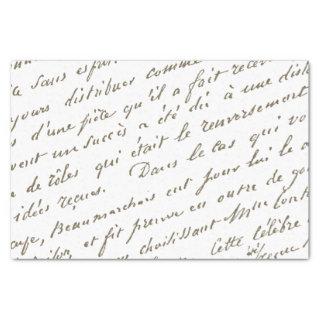 sans esprit
jours distribuer comme
d'une pièce qu'il a fait recev
vent un succès a été dû à une dist
de rôles qui était le renversement
idées reçues. Dans le cas qui vo
Beaumarchais eut pour lui le
et fit preuve en outre de go
choisissant Mlle Cont
Cette célèbre